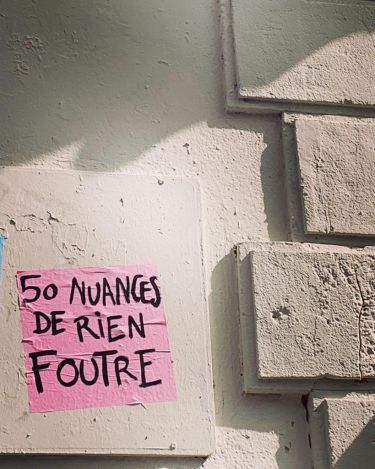 50 NUANCES
DE RIEN
FOUTRE